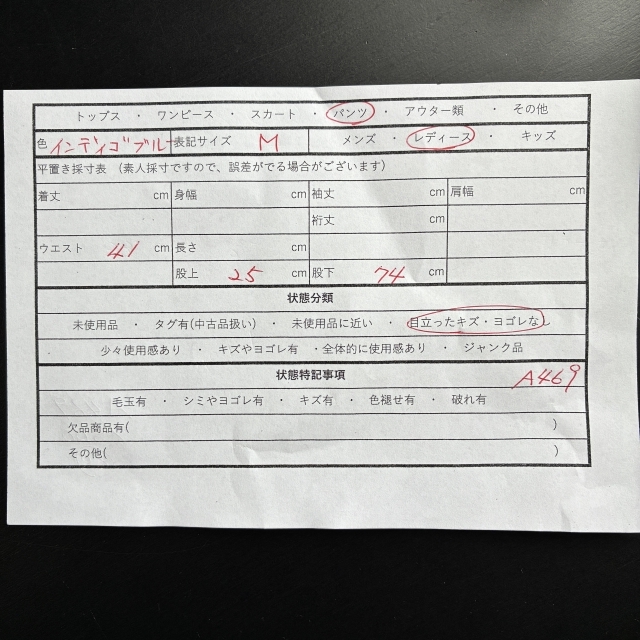 トップス ・ ワンピース ・ スカート ・ パンツ ・ アウター類 ・ その他
色 インディゴブルー 表記サイズ M メンズ ・ レディース ・ キッズ
平置き採寸表 (素人採寸ですので、誤差がでる場合がございます)
着丈 cm 身幅 cm 袖丈 cm 肩幅 cm
裄丈 cm
ウエスト 41 cm 長さ cm
股上 25 cm 股下 74 cm
状態分類
未使用品 ・ タグ有(中古品扱い) ・ 未使用品に近い ・ 目立ったキズ・ヨゴレなし
少々使用感あり ・ キズやヨゴレ有 ・全体的に使用感あり ・ ジャンク品
状態特記事項 A469
毛玉有 ・ シミやヨゴレ有 ・ キズ有 ・ 色褪せ有 ・ 破れ有
欠品商品有( )
その他( )